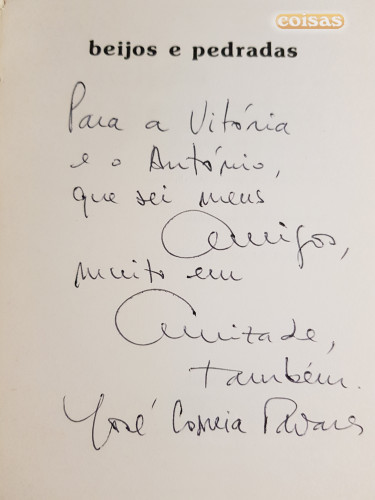 coisas
beijos e pedradas
Para a Vitória
e o António,
que sei meus
Amigos,
muito em
Amizade,
também.
José Correia Tavares